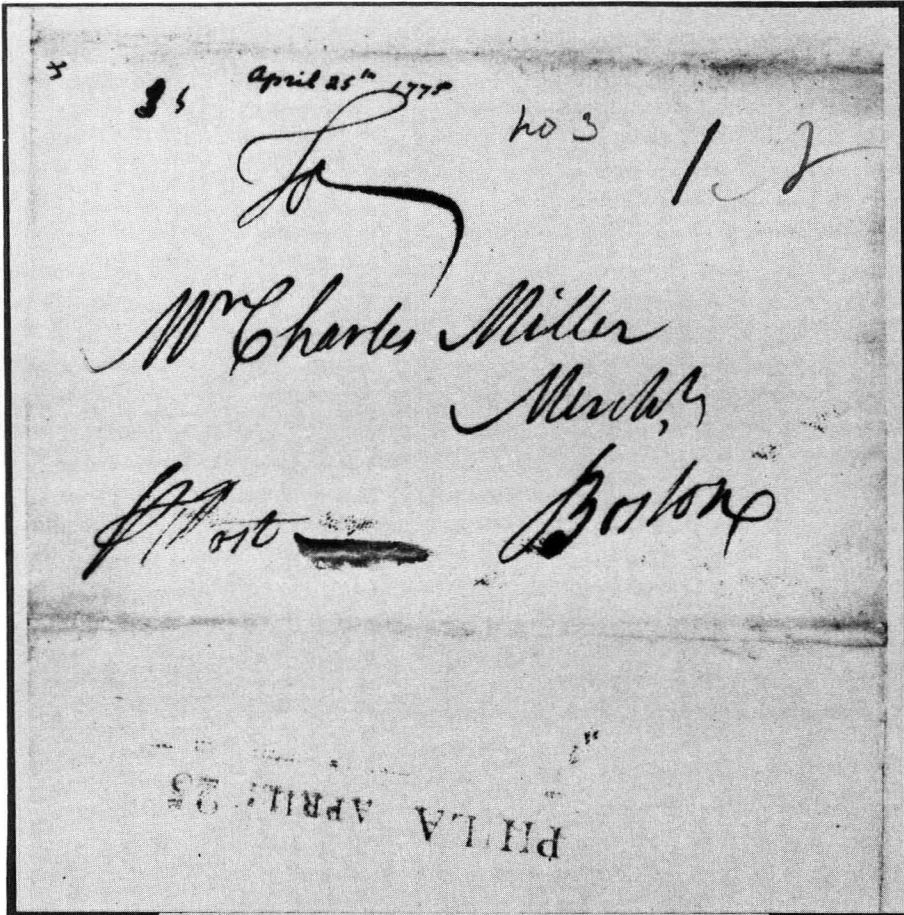 April 25th 1778
no 3
To
Mr Charles Miller
Mercht,
P Post
Boston
PHILA APRIL: 25